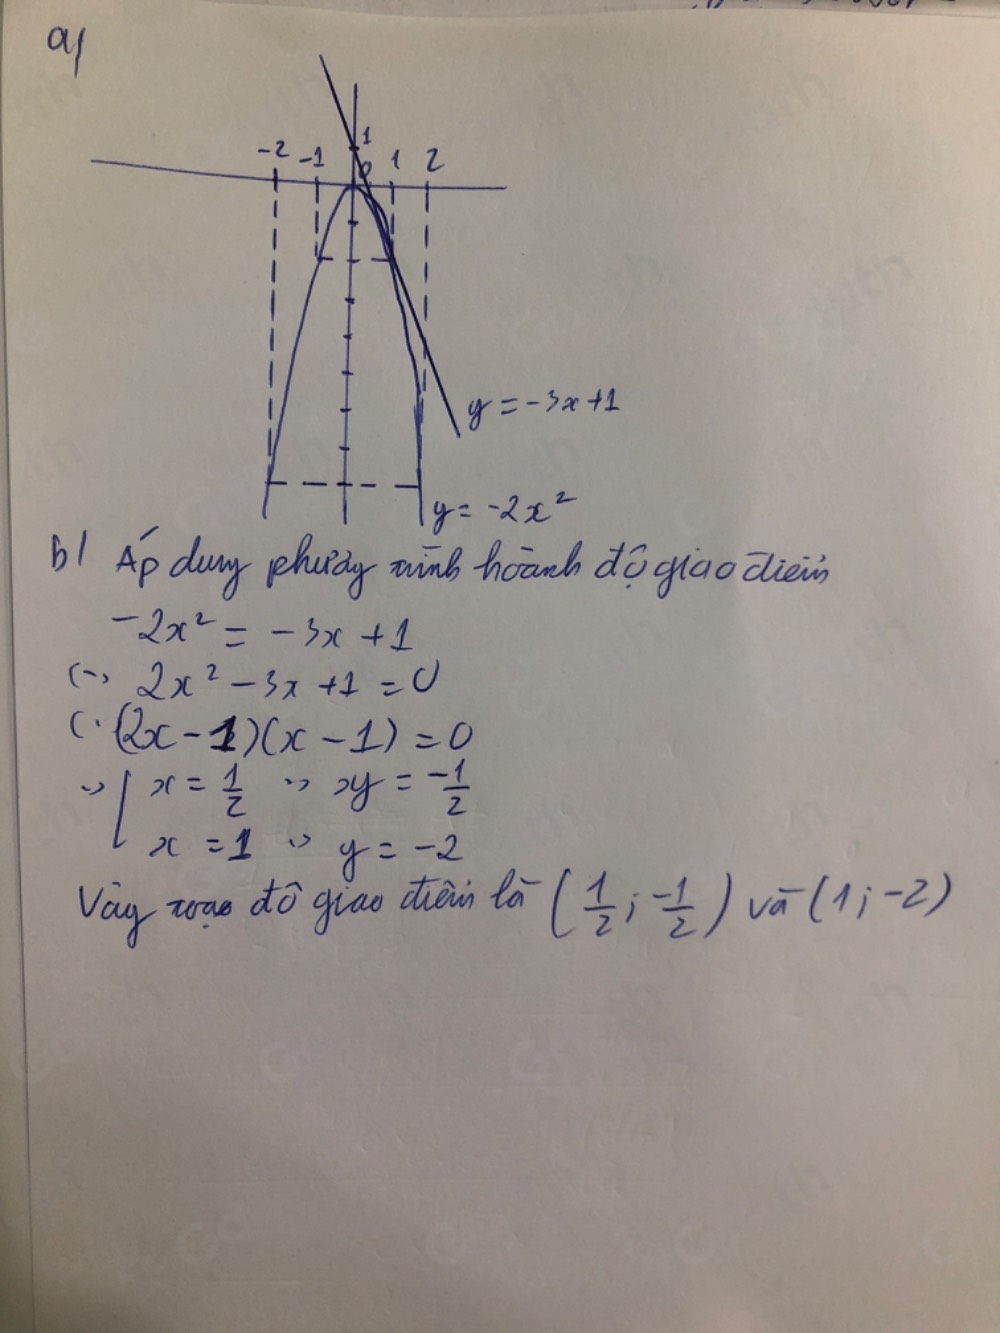 a)
1
-2 -1 0 1 2
y = -3x+1
y = -2x²
b) Áp dụng phương trình hoành độ giao điểm
-2x² = -3x + 1
(-) 2x² - 3x + 1 = 0
(. (2x - 1)(x - 1) = 0
-> [ x = 1/2 -> y = -1/2
x = 1 -> y = -2
Vậy toạ độ giao điểm là (1/2 ; -1/2) và (1; -2)